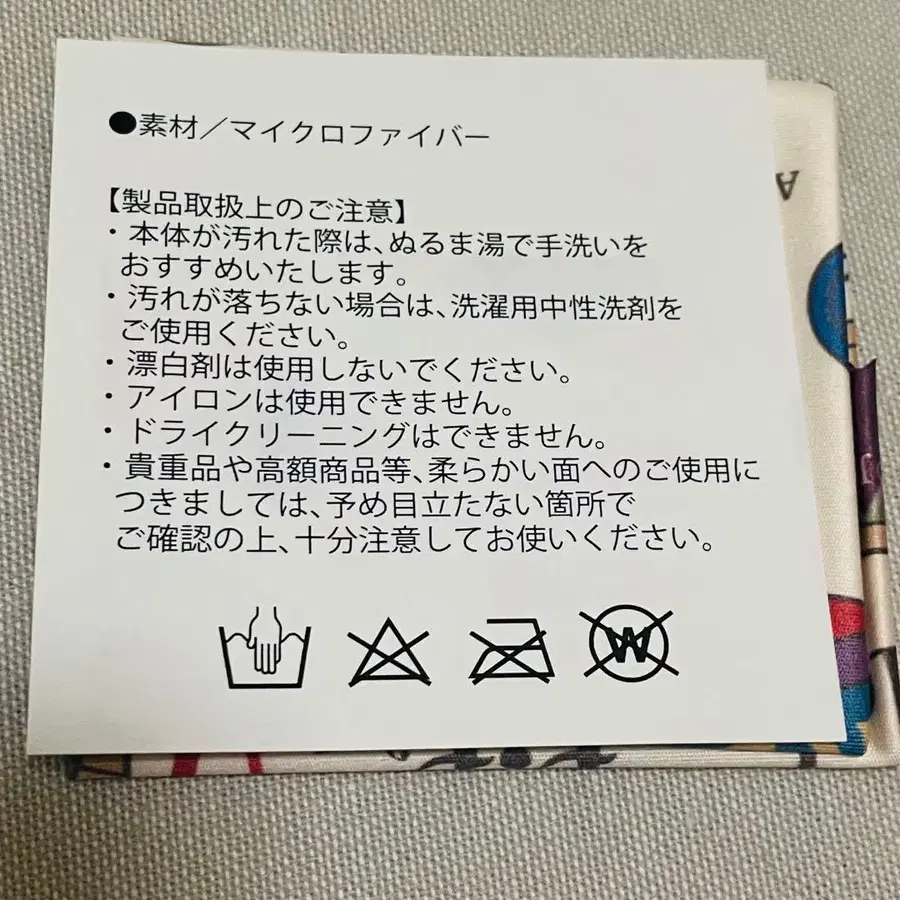 ●素材/マイクロファイバー
【製品取扱上のご注意】
・本体が汚れた際は、ぬるま湯で手洗いを
おすすめいたします。
・汚れが落ちない場合は、洗濯用中性洗剤を
ご使用ください。
・漂白剤は使用しないでください。
・アイロンは使用できません。
・ドライクリーニングはできません。
・貴重品や高額商品等、柔らかい面へのご使用に
つきましては、予め目立たない箇所で
ご確認の上、十分注意してお使いください。
W
A